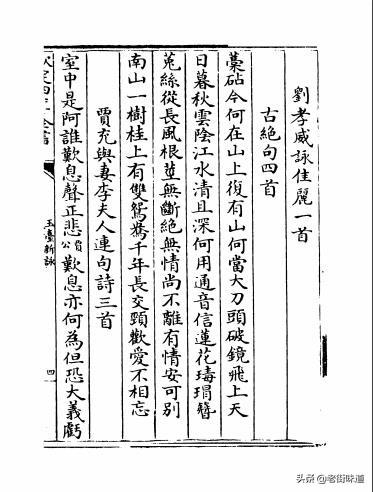 劉孝威詠佳麗一首
古絕句四首
藁砧今何在山上復有山何當大刀頭破鏡飛上天
日暮秋雲陰江水清且深何用通音信蓮花瑇瑁簪
菟絲從長風根莖無斷絕無情尚不離有情安可別
南山一樹桂上有雙鴛鴦千年長交頸歡愛不相忘
賈充與妻李夫人連句詩三首
室中是阿誰歎息聲正悲賈公歎息亦何為但恐大義虧
玉臺新詠
四
头条 @老街味道